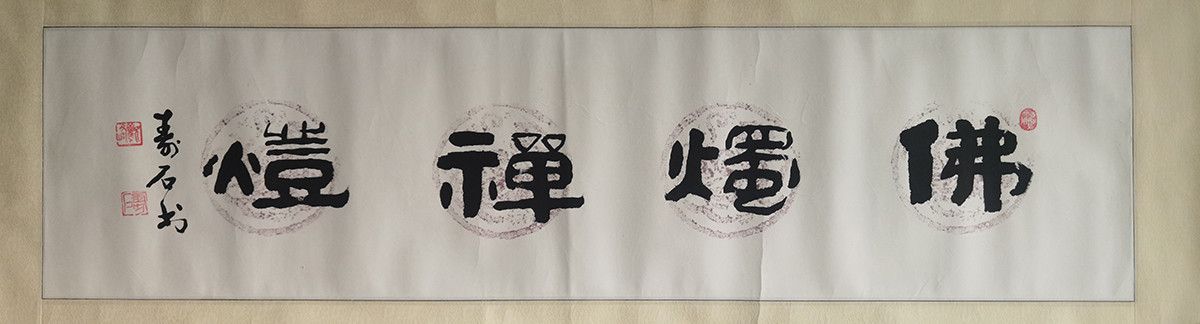 佛燭禪燈
壽石书